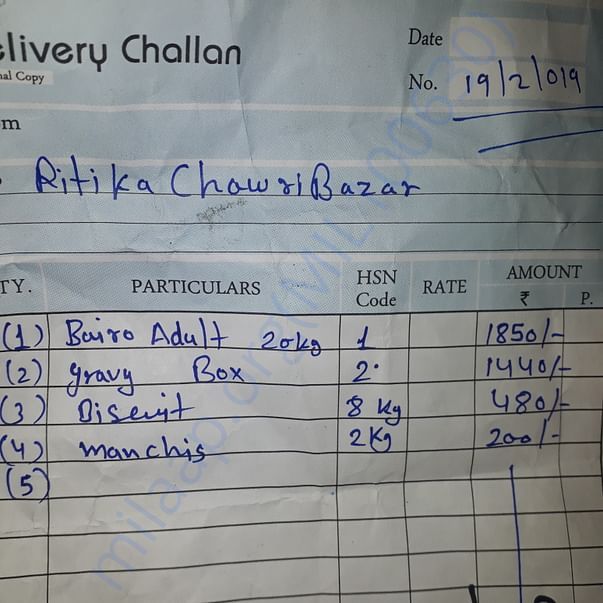 elivery Challan
nal Copy
Date
No. 19/2/019
m
Ritika Chawri Bazar
TY. PARTICULARS HSN Code RATE AMOUNT ₹ P.
(1) Bairo Adult 20kg 1 1850/-
(2) gravy Box 2. 1440/-
(3) Biscuit 8 Kg 480/-
(4) manchis 2Kg 200/-
(5)